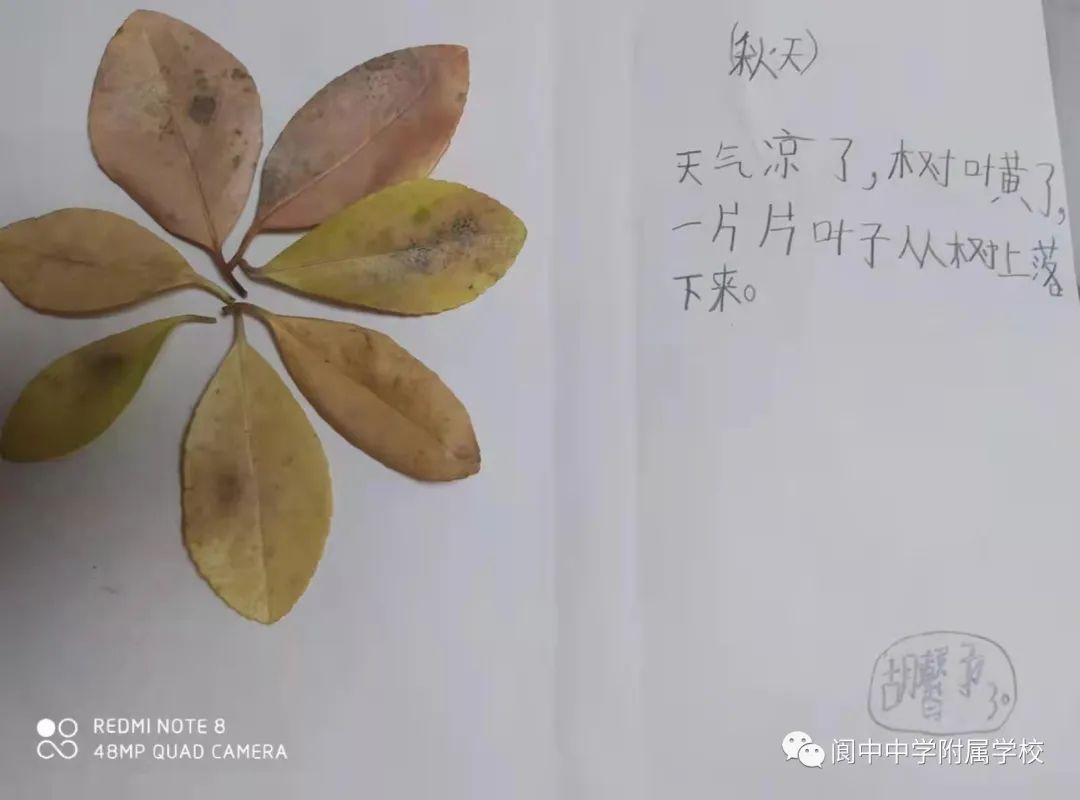 (秋天)
天气凉了，树叶黄了，
一片片叶子从树上落
下来。
胡馨予
30
REDMI NOTE 8
48MP QUAD CAMERA
阆中中学附属学校